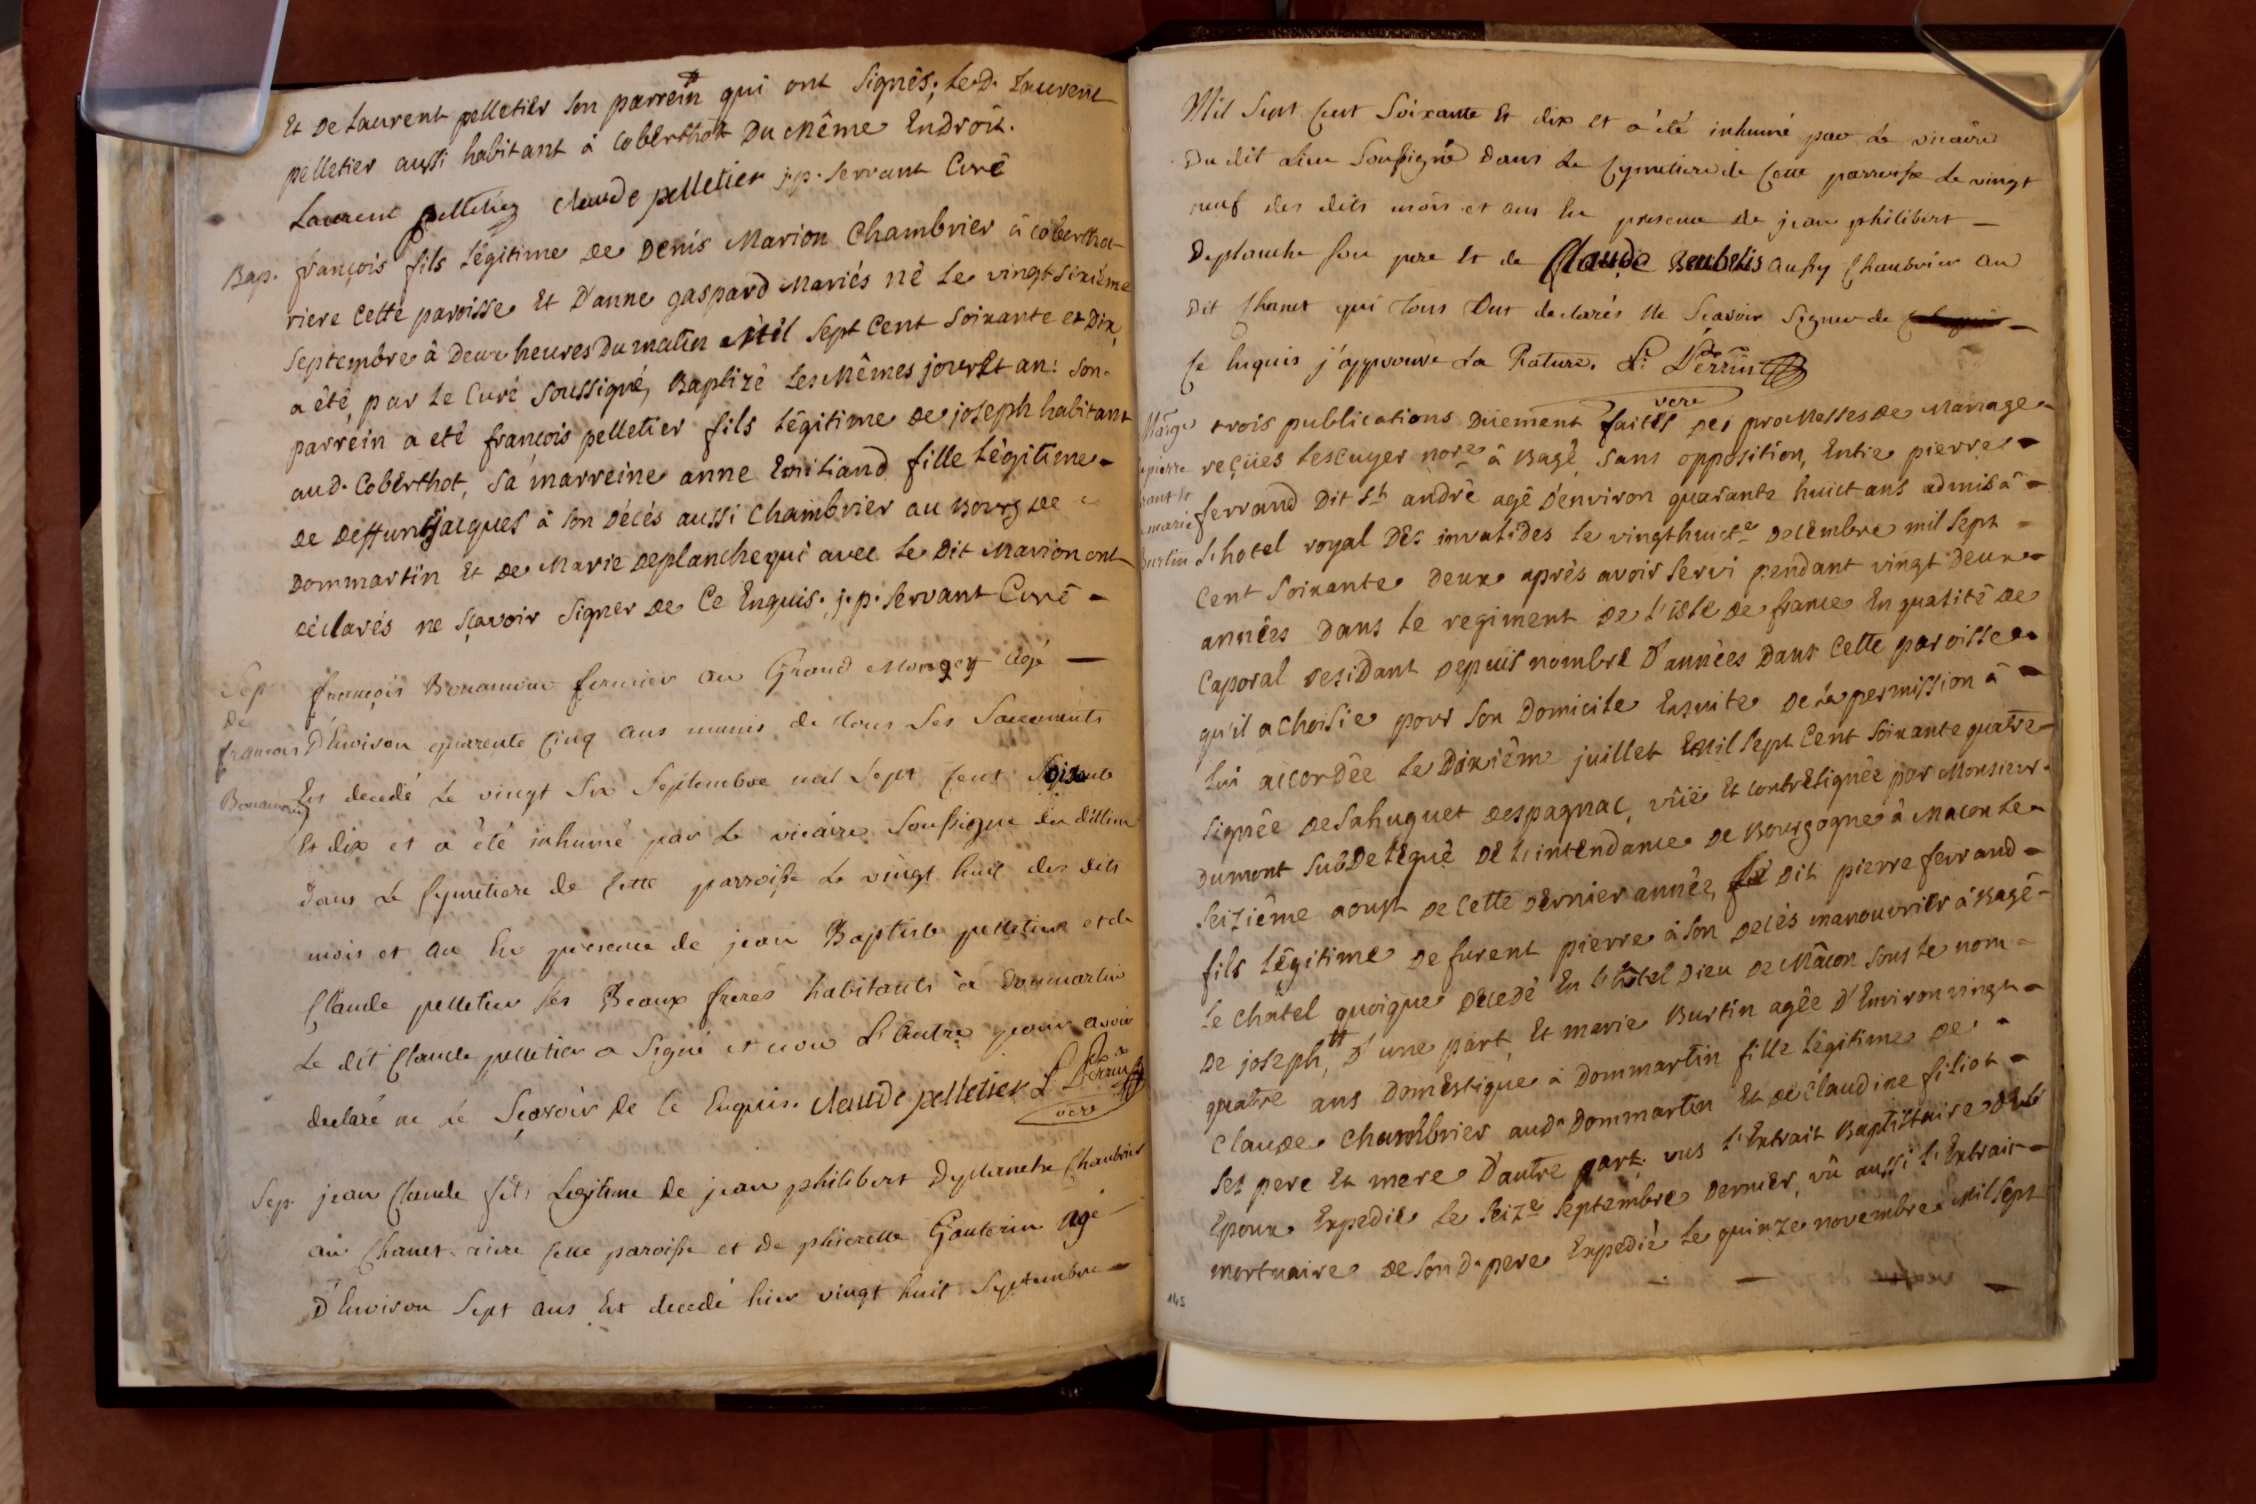 Et De Laurent pelletier son parrein qui ont signés; le d. Laurent
pelletier aussi habitant à Coberthot Du même Endroit.
Laurent pelletier claude pelletier j. p. servant Curé
Bap. françois fils légitime de Denis Marion Chambrier à Cobertho-
riere cette paroisse et D'anne gaspard mariés né le vingt sixième
septembre à Deux heures Du matin Mil sept cent soixante et Dix,
a été, par le Curé soussigné, Baptizé les Mêmes jour Et an: son-
parrein a eté françois pelletier fils légitime de joseph habitant
aud. Coberthot, sa marreine anne Emiliand fille légitime
de deffunt jacques à son décés aussi chambrier au Bourg de
Dommartin Et de Marie Deplanche qui avec le Dit Marion ont
déclarés ne sçavoir signer de Ce Enquis. j. p. servant Curé
Sep. françois Bonamour fermier au Grand Mongey agé
de
françois D'Environ quarente cinq ans munis de tous ses sacrements
Bonamour Est decedé le vingt six septembre mil sept cent soixante
Et dix et a été inhumé par le vicaire soussigné du dit lieu
dans le Cymetiere de cette parroisse le vingt huit des dits
mois et an En presence de jean Baptiste pelletier et de
Claude pelletier ses Beaux freres habitants à dommartin
le dit Claude pelletier a signé et non L'autre pour avoir
declaré ne le sçavoir de ce Enquis. claude pelletier L Perrin
vere
Sep. jean Claude fils legitime de jean philibert Deplanche Chambrier
au Chanet riere cette paroisse et de pierrette Gauterin agé
D'Environ sept ans Est decedé hier vingt huit septembre
Mil sept cent soixante Et dix et a été inhumé par le vicaire
Du dit Lieu soussigné dans le Cymetiere de cette parroisse le vingt
neuf des dits mois et ans En presence de jean philibert
Deplanche son pere Et de Claude aussy Chambrier au
dit Chanet qui tous Deux declarés ne sçavoir signer de
ce Enquis j'approuve la Rature. L. Perrin
vere
Mariage trois publications Düement faittes des promesses de Mariage
de pierre reçües Lescuyer nore à Bagé, sans opposition, Entre pierre
ferrand Dit St andré agé d'environ quarante huict ans admis à
marie
Burtin L'hotel royal Des invalides le vingthuicte Decembre mil sept
cent soixante deux après avoir servi pendant vingt Deux
années Dans le regiment de l'isle de france En qualité de
Caporal residant depuis nombre D'années Dans cette paroisse
qu'il a choisie pour son Domicile Ensuite de la permission à
lui accordée le Dixiéme juillet Mil sept cent soixante quatre
signée de sahuguet despagnac, vûë et contresignée par Monsieur
Dumont subdelegué de L'intendance de Bourgogne à Macon le
seizième aoust de cette dernier année, Dit pierre ferrand
fils légitime de furent pierre à son decés manouvrier à Bagé
le chatel quoique decedé En L'hôtel Dieu de Mâcon sous le nom
de joseph, D'une part, Et marie Burtin agée D'Environ vingt
quatre ans domestique à Dommartin fille légitime de
claude chambrier aud. Dommartin Et de claudine filiot
ses pere Et mere D'autre part; vus L'Extrait Baptistaire de
Epoux Expedié le seize septembre dernier, vû aussi L'Extrait
mortuaire de son d. pere Expedié le quinze novembre Mil sept
145